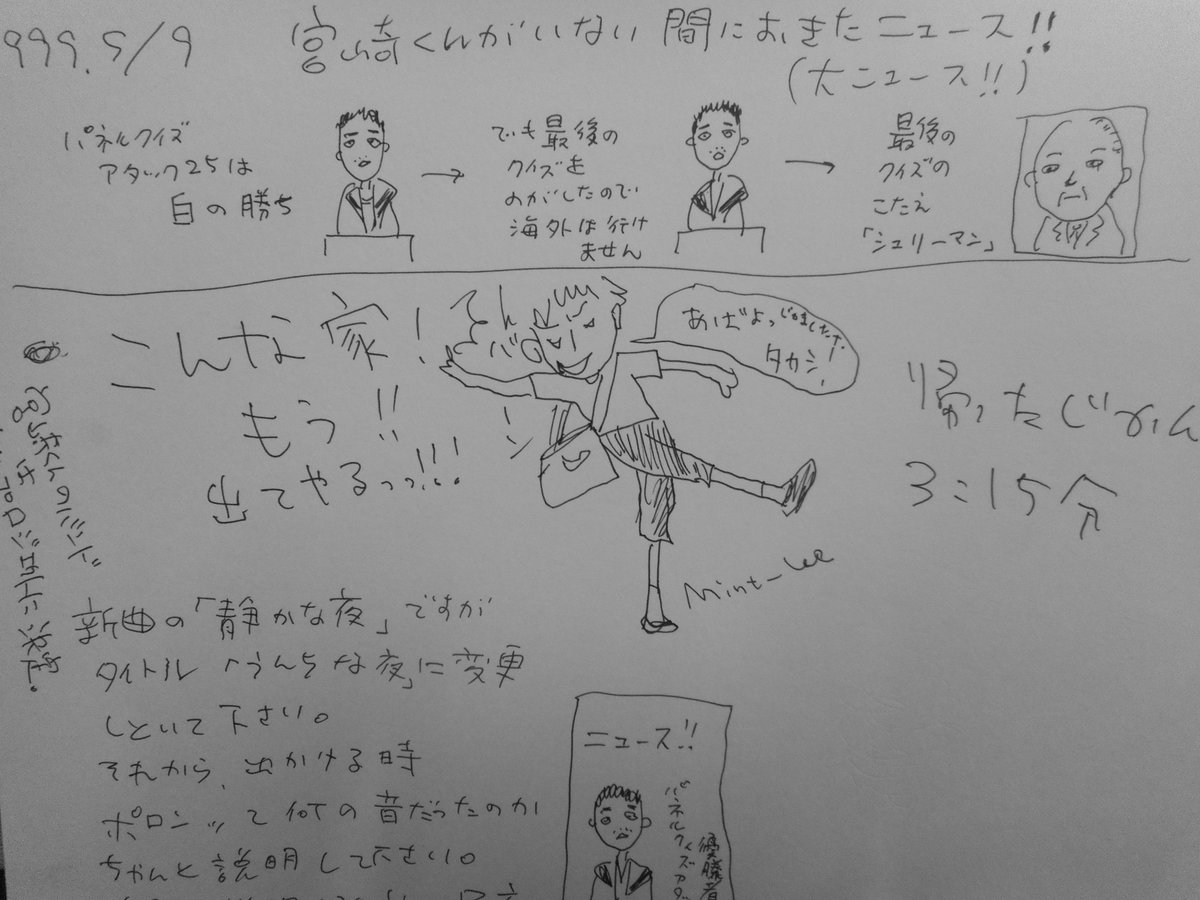 999.5/9
宮崎くんがいない間におきたニュース!!
(大ニュース!!)
パネルクイズ
アタック25は
白の勝ち
→
でも最後の
クイズを
のがしたので
海外は行け
ません
→
最後の
クイズの
こたえ
「シュリーマン」
こんな家!
もう!!
出てやるっっ!!!
あばよっ
タカシ!
帰ったじかん
3:15分
Mint-Lee
新曲の「静かな夜」ですが
タイトル「うんちな夜」に変更
しといて下さい。
それから、出かける時
ポロンッて何の音だったのか
ちゃんと説明して下さい。
ニュース!!
パネルクイズアタ
優勝者